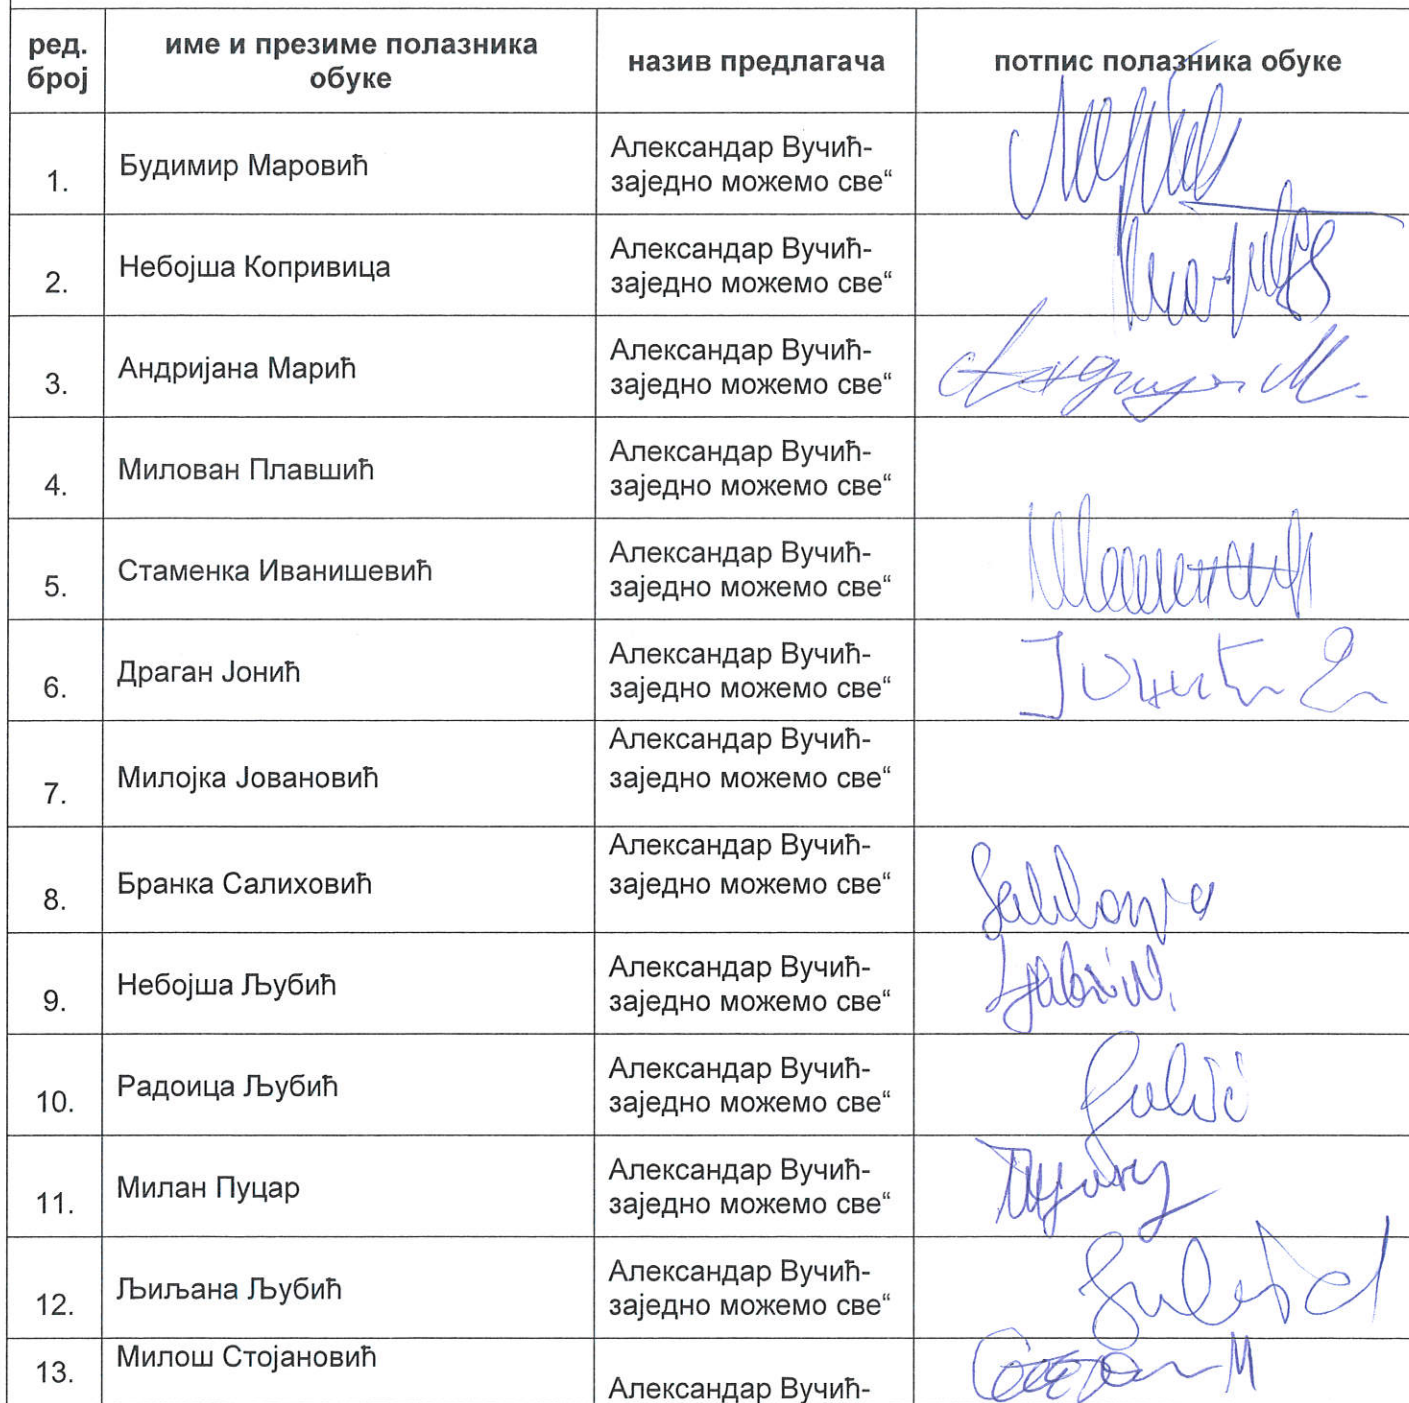 ред. број
име и презиме полазника обуке
назив предлагача
потпис полазника обуке
1.
Будимир Маровић
Александар Вучић-
заједно можемо све“
2.
Небојша Копривица
Александар Вучић-
заједно можемо све“
3.
Андријана Марић
Александар Вучић-
заједно можемо све“
4.
Милован Плавшић
Александар Вучић-
заједно можемо све“
5.
Стаменка Иванишевић
Александар Вучић-
заједно можемо све“
6.
Драган Јонић
Александар Вучић-
заједно можемо све“
7.
Милојка Јовановић
Александар Вучић-
заједно можемо све“
8.
Бранка Салиховић
Александар Вучић-
заједно можемо све“
9.
Небојша Љубић
Александар Вучић-
заједно можемо све“
10.
Радоица Љубић
Александар Вучић-
заједно можемо све“
11.
Милан Пуцар
Александар Вучић-
заједно можемо све“
12.
Љиљана Љубић
Александар Вучић-
заједно можемо све“
13.
Милош Стојановић
Александар Вучић-